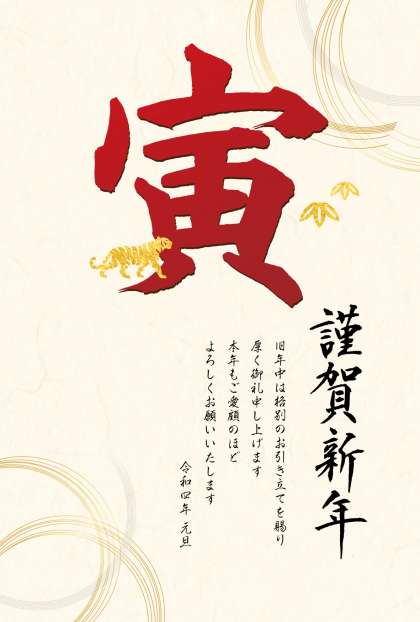 寅
謹賀新年
旧年中は格別のお引き立てを賜り
厚く御礼申し上げます
本年もご愛顧のほど
よろしくお願いいたします
令和四年 元旦